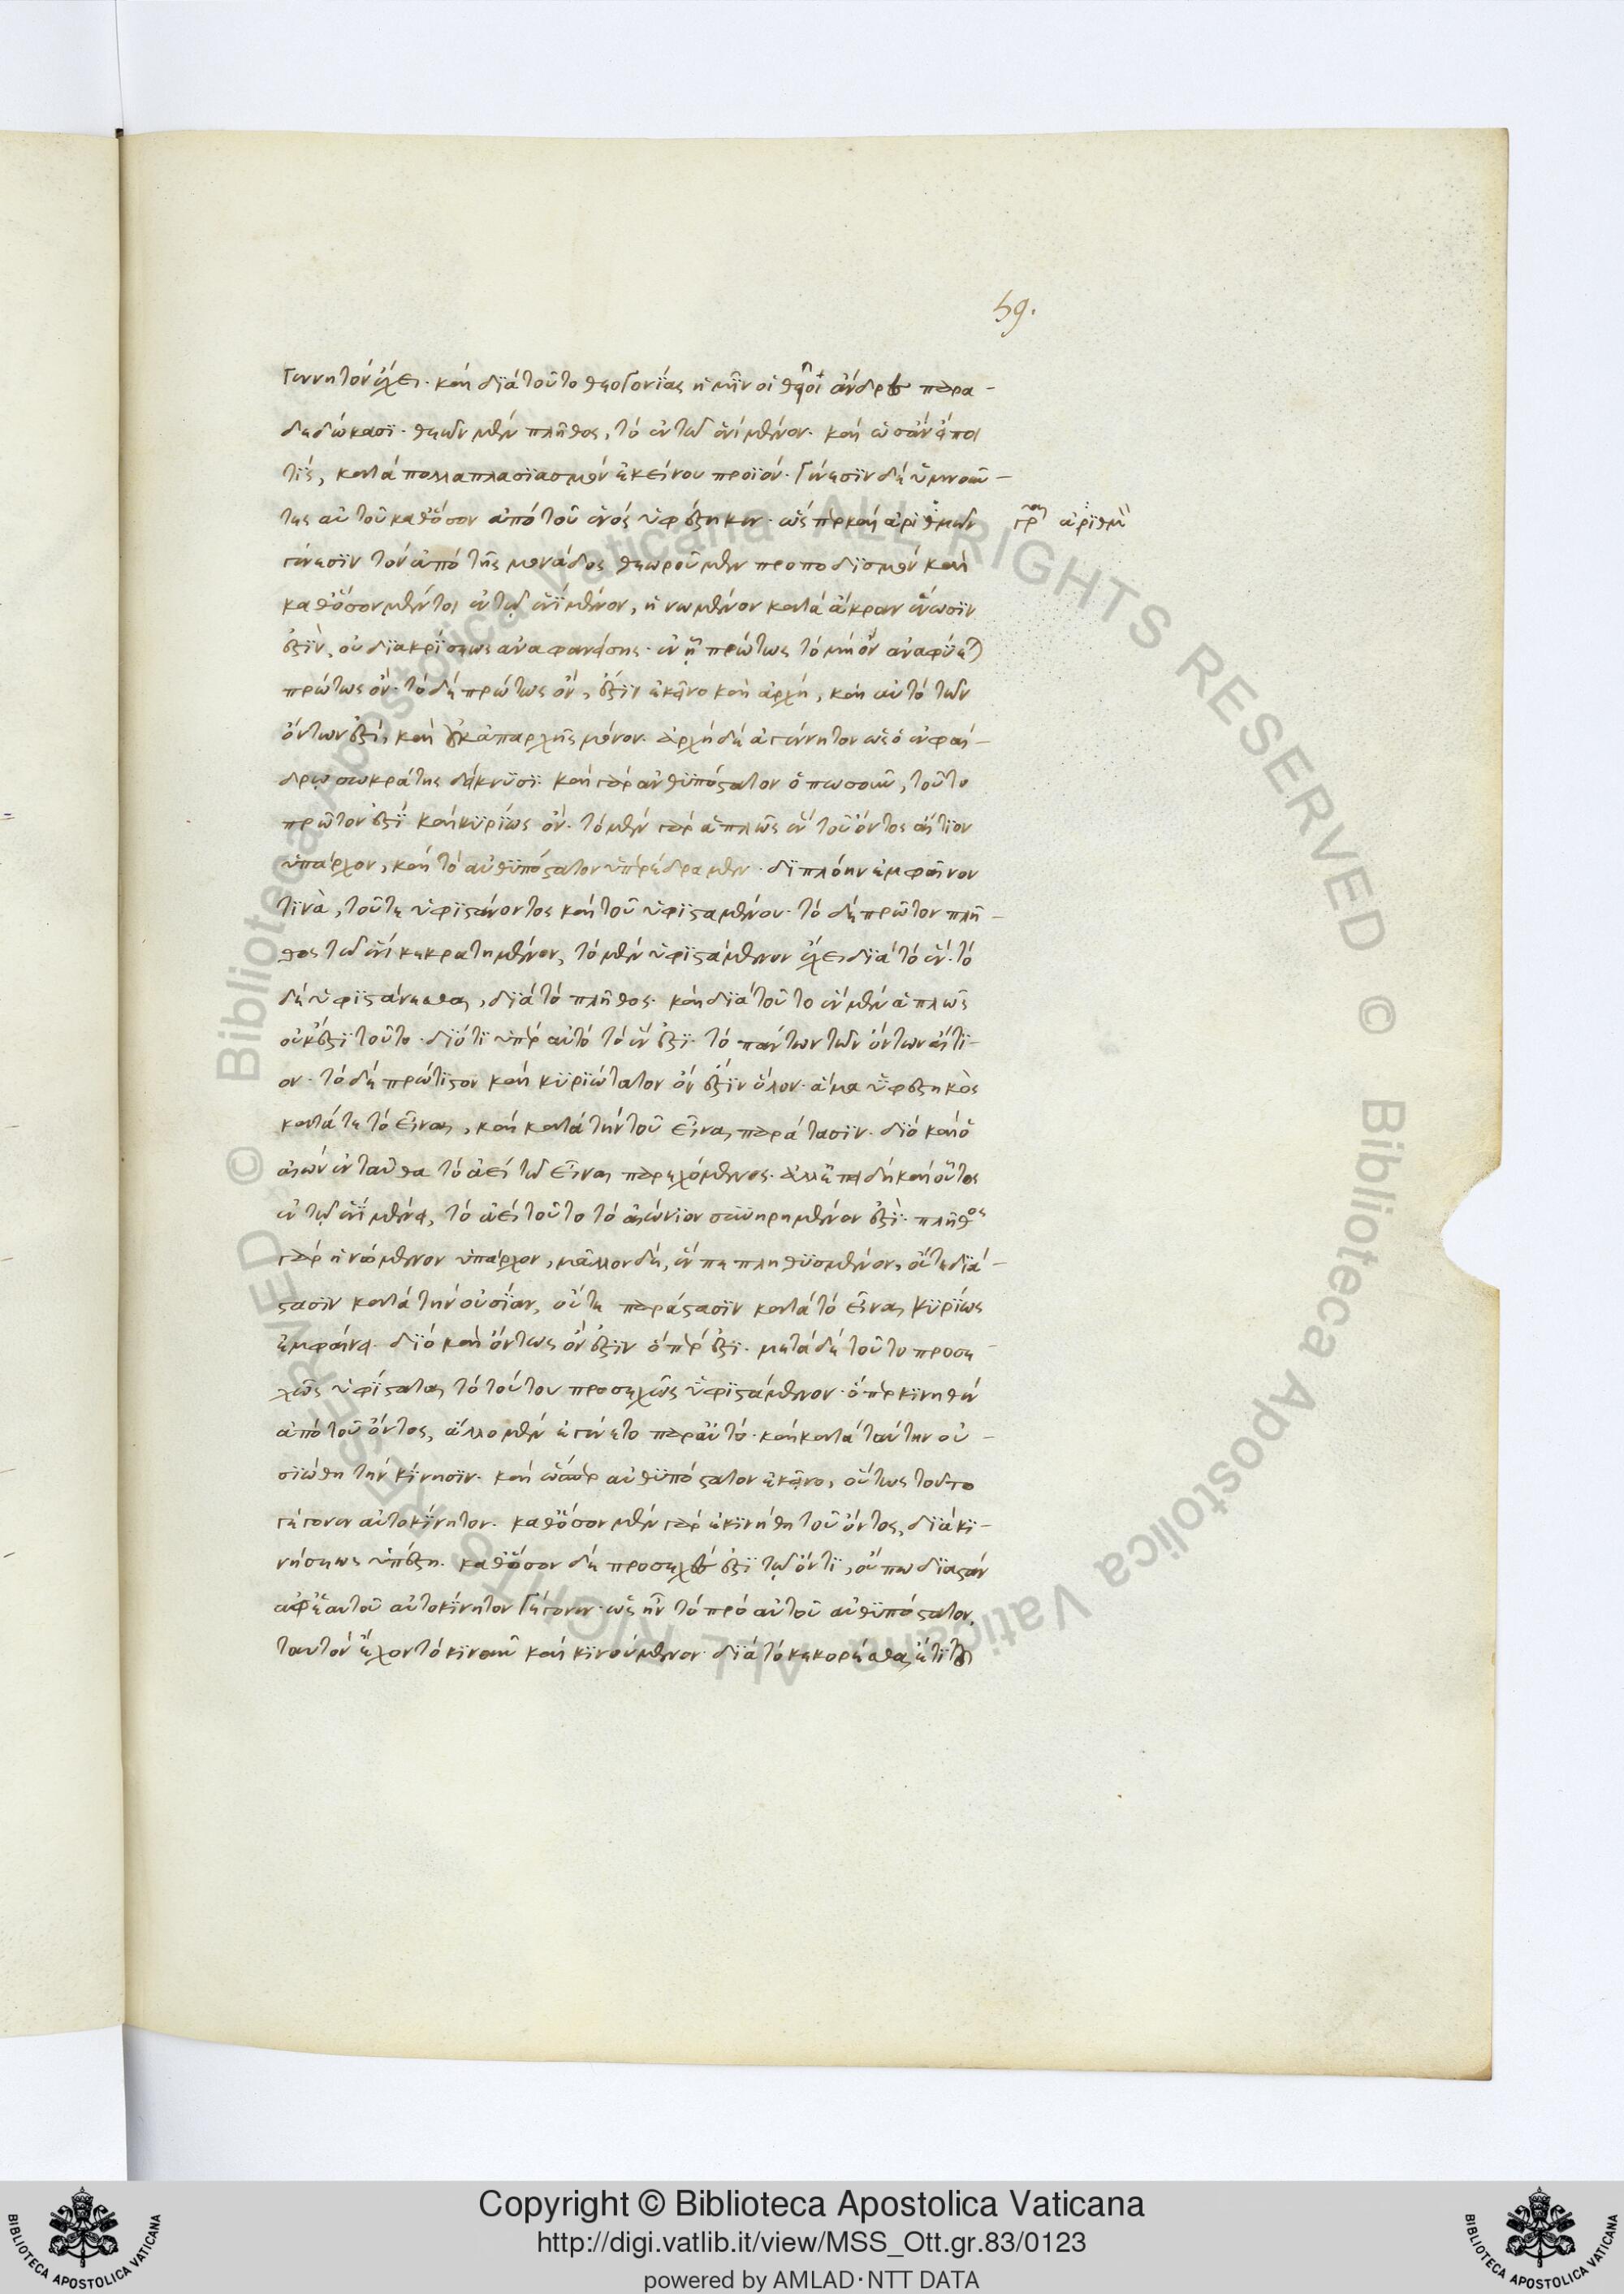 59.
γεννητὸν ἔχει. καὶ διὰ τοῦτο θεογονίας ἡμῖν οἱ θεῖοι ἄνδρες παρα-
δεδώκασι. θεῶν μὲν πλῆθος, τὸ ἐν τῷ ἑνὶ μένον. καὶ ὡσὰν εἴποι
τὶς, κατὰ πολλαπλασιασμὸν ἐκείνου προϊόν. γένεσιν δὲ ὑμνοῦν-
τες αὐτοῦ καθόσον ἀπὸ τοῦ ἑνὸς ὑφέστηκεν. ὥσπερ καὶ ἀριθμῶν
γρ ἀριθμὸν
γένεσιν τὸν ἀπὸ τῆς μονάδος θεωροῦμεν προποδισμὸν καὶ
καθόσον μέντοι ἐν τῷ ἑνὶ μένον, ἡνωμένον κατὰ ἄκραν ἕνωσιν
ἐστὶν, οὐ διακρίσεως ἀναφανείσης. ἐν ᾗ πρώτως τὸ μὴ ὂν ἀναφύεται
πρώτως ὄν. τὸ δὲ πρώτως ὄν, ἐστὶν ἐκεῖνο καὶ ἀρχὴ, καὶ αὐτὸ τῶν
ὄντων ἐστὶ, καὶ οὐκ ἀπαρχῆς μόνον. ἀρχὴ δὲ ἀγέννητον ὡς ὁ ἐν φαί-
δρῳ σωκράτης δείκνυσι. καὶ γὰρ ἀνθυπόστατον ὁπωσοῦν, τοῦτο
πρῶτον ἐστὶ καὶ κυρίως ὄν. τὸ μὲν γὰρ ἁπλῶς ἓν τοῦ ὄντος αἴτιον
ὑπάρχον, καὶ τὸ αὐθυπόστατον ὑπερέδραμεν. διπλόην ἐμφαῖνον
τινὰ, τοῦ τε ὑφιστάνοντος καὶ τοῦ ὑφισταμένου. τὸ δὲ πρῶτον πλῆ-
θος τῷ ἑνὶ κεκρατημένον, τὸ μὲν ὑφιστάμενον ἔχει διὰ τὸ ἕν. τὸ
δὲ ὑφιστάνεσθαι, διὰ τὸ πλῆθος. καὶ διὰ τοῦτο ἓν μὲν ἁπλῶς
οὐκ ἔστι τοῦτο. διότι ὑπὲρ αὐτὸ τὸ ἕν ἐστι. τὸ πάντων τῶν ὄντων αἴτι-
ον. τὸ δὲ πρώτιστον καὶ κυριώτατον ὄν ἐστιν ὅλον. ἅμα ὑφεστηκὸς
κατά τε τὸ εἶναι, καὶ κατὰ τὴν τοῦ εἶναι παράτασιν. διὸ καὶ ὁ
αἰὼν ἐνταῦθα τὸ ἀεὶ τῷ εἶναι παρεχόμενος. ἀλλ' ἐπειδὴ καὶ οὗτος
ἐν τῷ ἑνὶ μένει, τὸ ἀεὶ τοῦτο τὸ αἰώνιον συνῃρημένον ἐστὶ. πλῆθος
γὰρ ἡνωμένον ὑπάρχον, μᾶλλον δὲ, ἕν πη πληθυόμενον, οὔτε διά-
στασιν κατὰ τὴν οὐσίαν, οὔτε παράτασιν κατὰ τὸ εἶναι κυρίως
ἐμφαίνει. διὸ καὶ ὄντως ὄν ἐστιν ὅπερ ἐστί. μετὰ δὲ τοῦτο προσε-
χῶς ὑφίσταται τὸ τούτου προσεχῶς ὑφιστάμενον. ὅπερ κινηθὲν
ἀπὸ τοῦ ὄντος, ἄλλο μὲν ἐγένετο παρ' αὐτό. καὶ κατὰ ταύτην οὐ-
σιώθη τὴν κίνησιν. καὶ ὥσπερ αὐθυπόστατον ἐκεῖνο, οὕτως τοῦτο
γέγονεν αὐτοκίνητον. καθόσον μὲν γὰρ ἐκινήθη τοῦ ὄντος, διὰ κι-
νήσεως ὑπέστη. καθόσον δὲ προσεχές ἐστι τῷ ὄντι, οὔπω διαστὰν
ἀφ' ἑαυτοῦ αὐτοκίνητον γέγονεν. ὡς ἦν τὸ πρὸ αὐτοῦ αὐθυπόστατον,
ταυτὸν ἔχον τὸ κινοῦν καὶ κινούμενον. διὰ τὸ κεκορέσθαι ἔτι τῆς
Copyright © Biblioteca Apostolica Vaticana
http://digi.vatlib.it/view/MSS_Ott.gr.83/0123
powered by AMLAD·NTT DATA